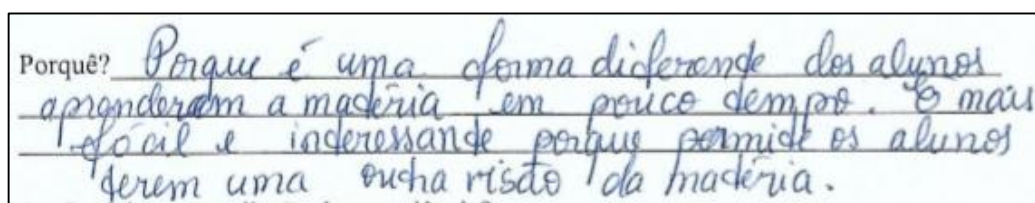 Porquê? Porque é uma forma diferente dos alunos
aprenderem a matéria em pouco tempo. É mais
fácil e interessante porque permite os alunos
terem uma outra visão da matéria.